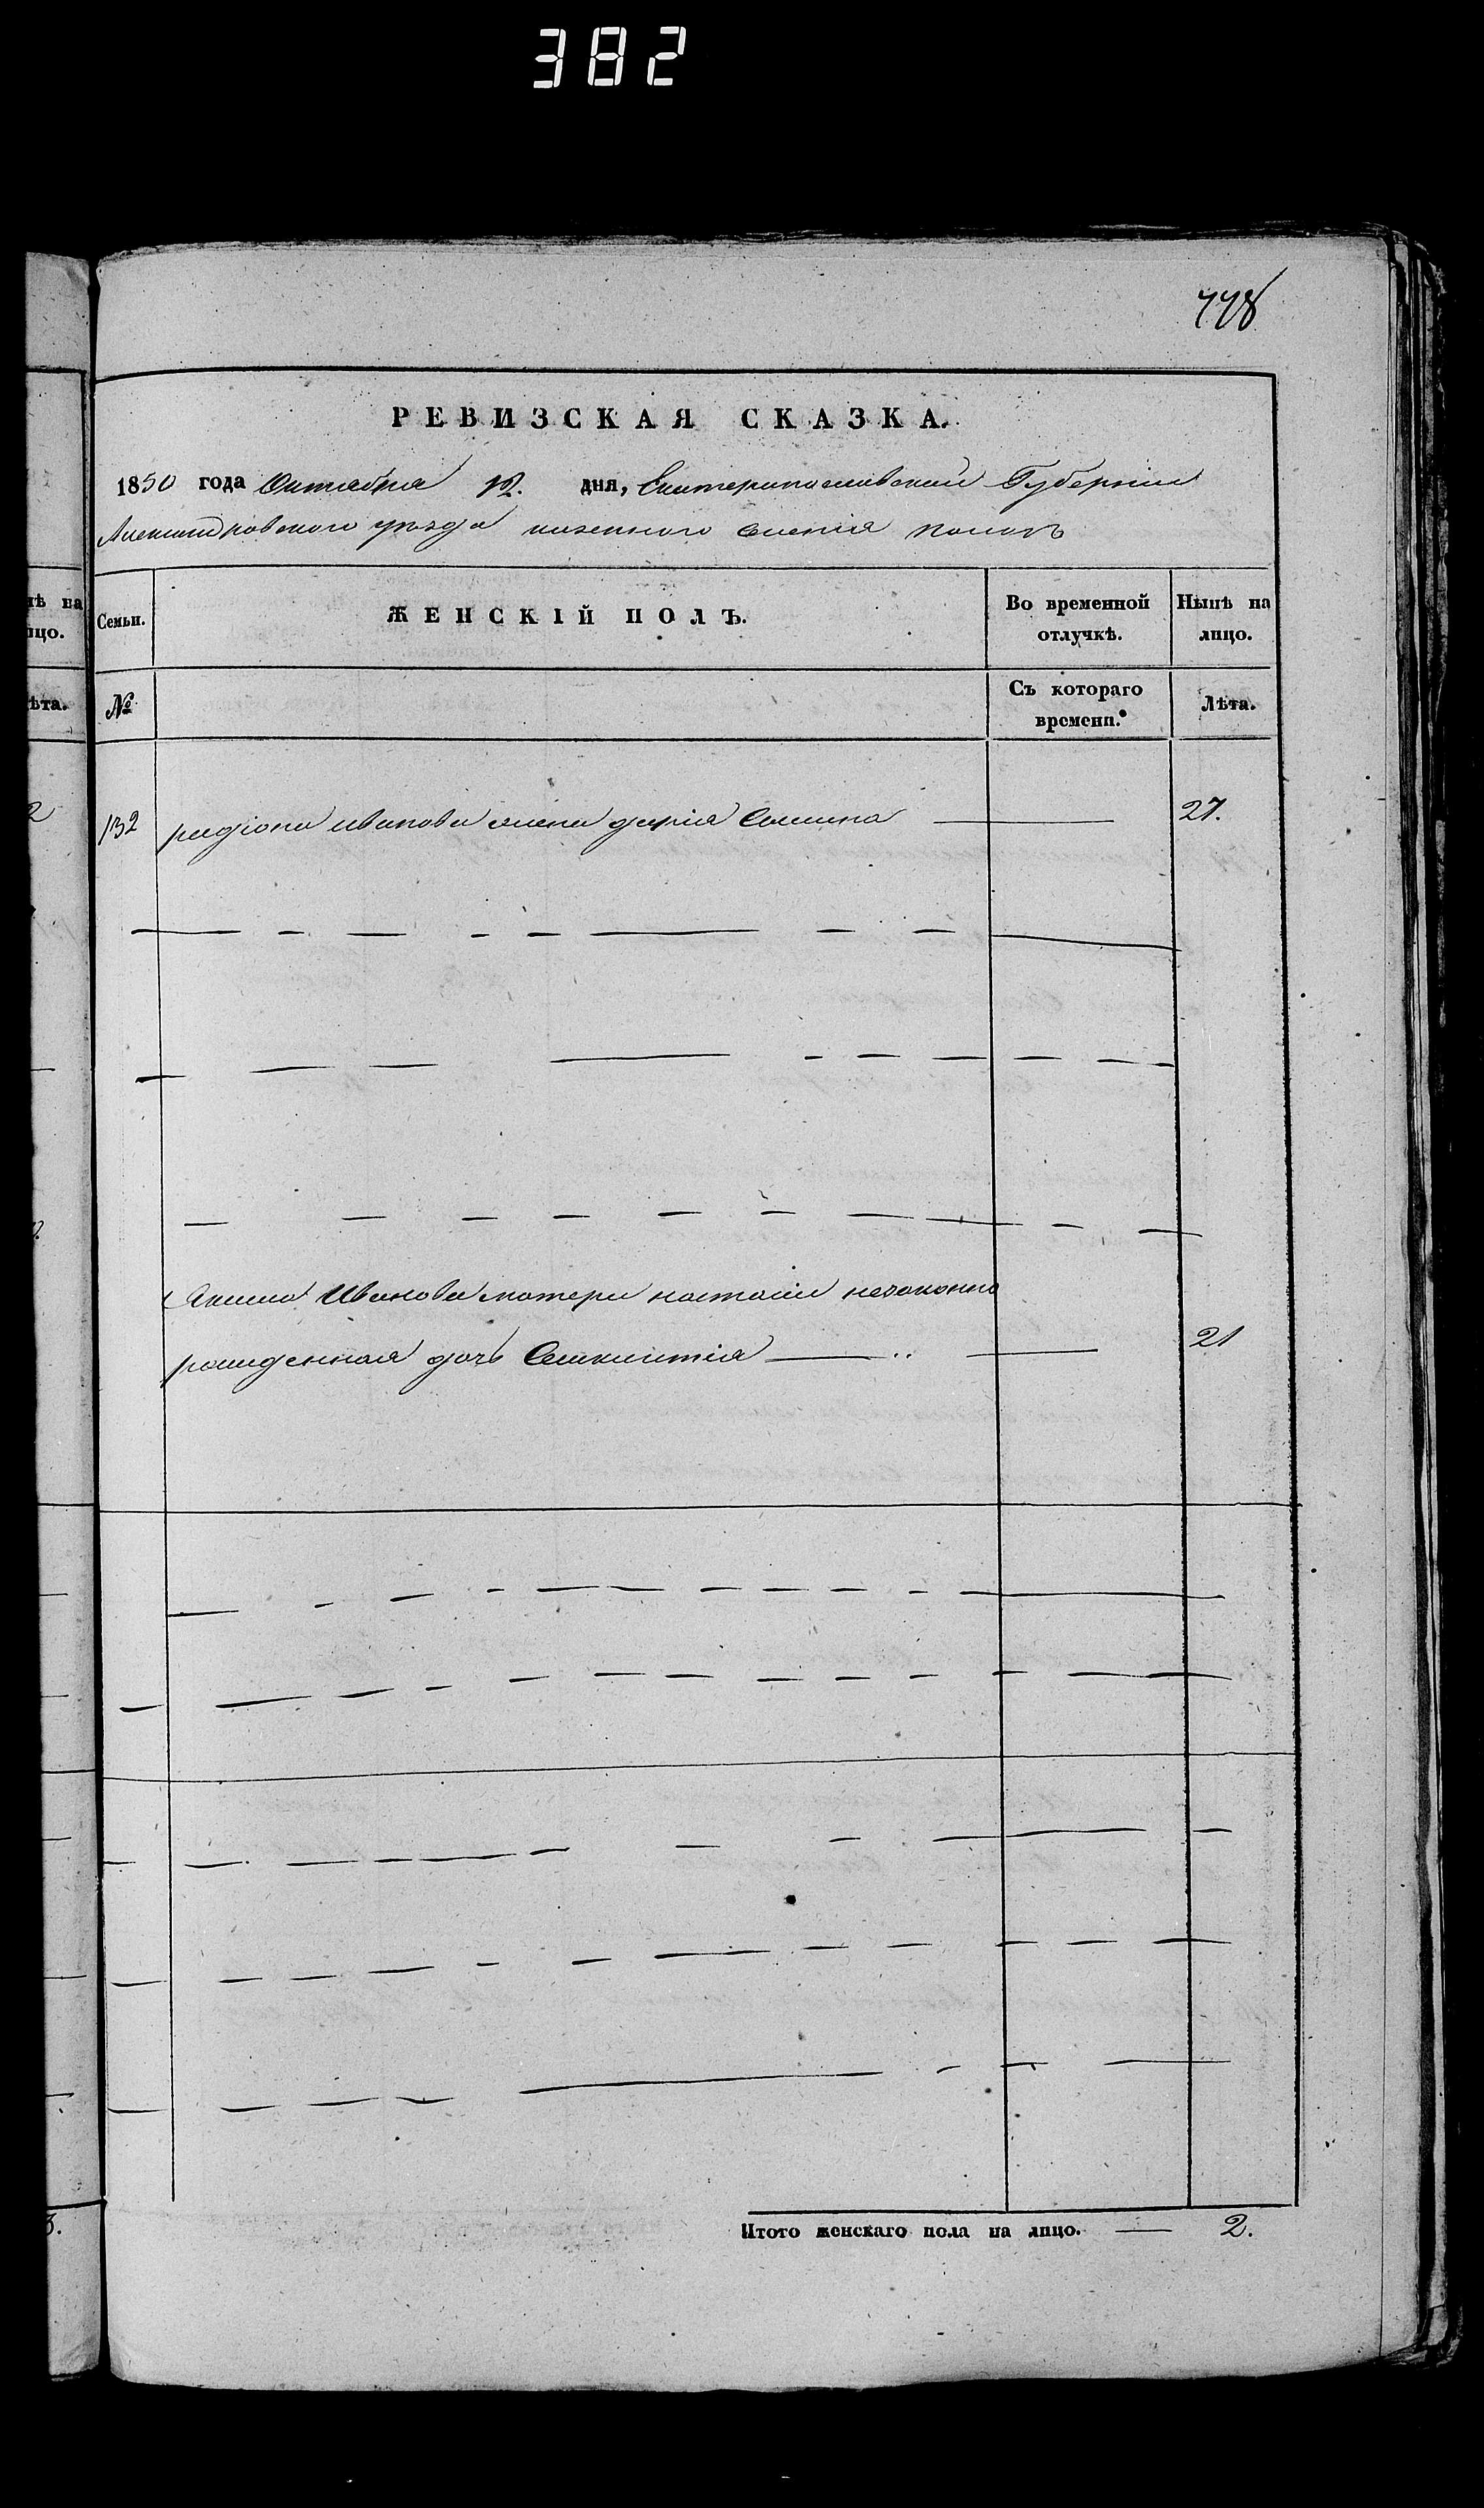 382
778
РЕВИЗСКАЯ СКАЗКА.
1850 года Октября 12. дня, Екатеринославской Губерніи
Александровского уезда казенного селенія
нѣ на
лицо.
Семьи.
ЖЕНСКІЙ ПОЛЪ.
Во временной
отлучкѣ.
Нынѣ на
лицо.
ѣта.
№
Съ котораго
времени.
Лѣта.
2
132 радіона иванова жена дарія 27.
Акима Иванова матери настасіи незаконно
рожденная дочь 21
3.
Итого женскаго пола на лицо. — 2.